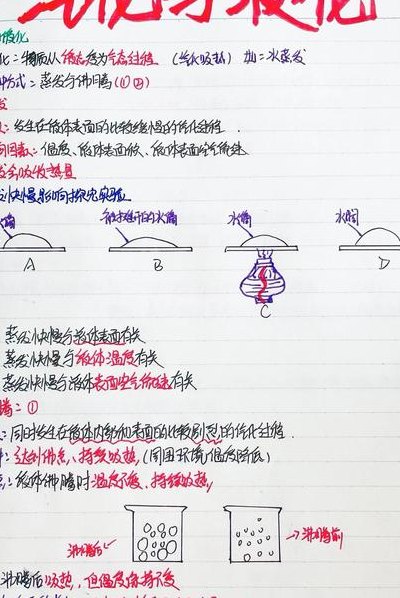 汽化与液化
液化
化：物质从液态变为气态过程 （汽化吸热） 如：水蒸发
方式：蒸发与沸腾(①②)
发
：发生在液体表面的比较缓慢的汽化过程．
因素：温度、液体表面积、液体表面空气流速
发会吸收热量
快慢影响探究实验
水滴 水滴 水滴
A B C D
：蒸发快慢与液体表面有关
蒸发快慢与液体温度有关
蒸发快慢与液体表面空气流速有关
腾：①
：同时发生在液体内部和表面的比较剧烈的汽化过程．
：达到沸点、持续吸热，(周围环境温度降低)
：液体沸腾时温度不变、持续吸热，
沸腾后 沸腾前
沸腾后吸热，但温度保持不变